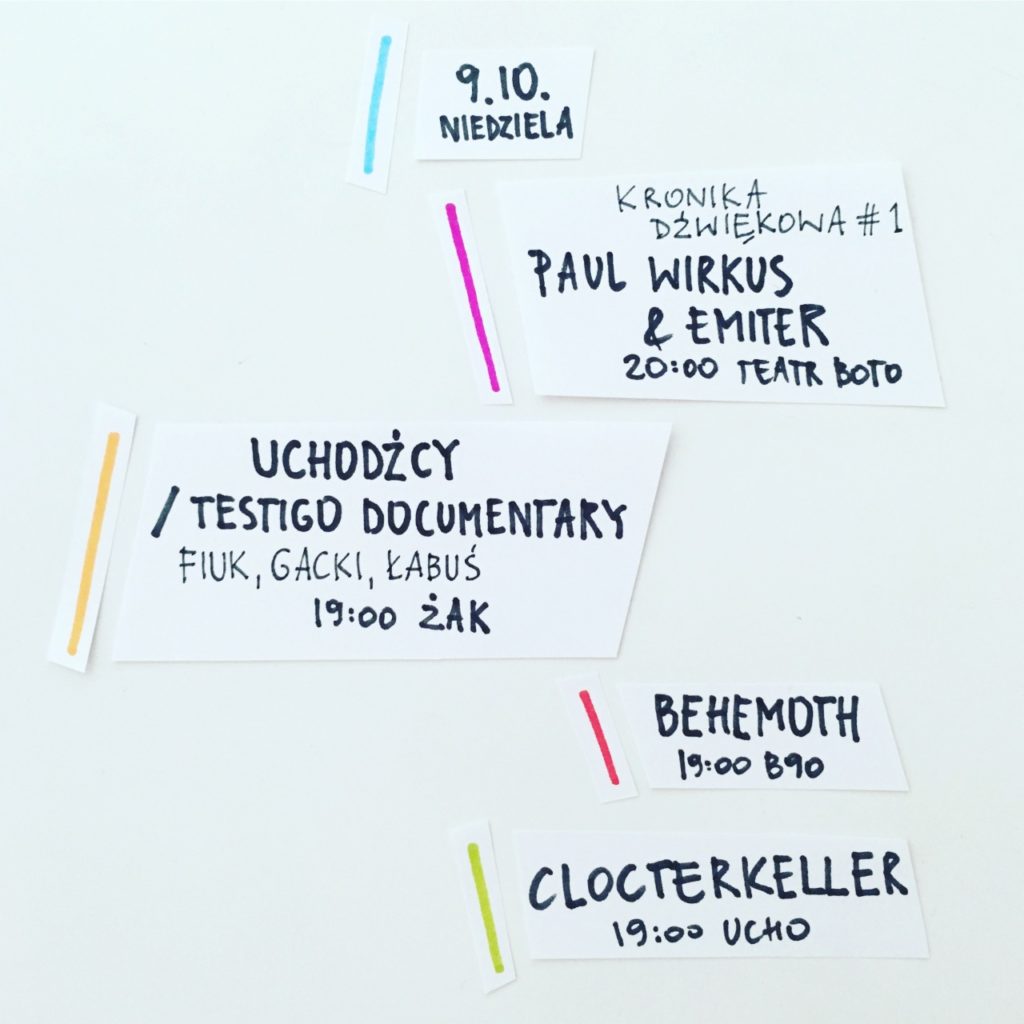 9.10.
NIEDZIELA
KRONIKA
DŹWIĘKOWA #1
PAUL WIRKUS
& EMITER
20:00 TEATR BOTO
UCHODŹCY
/ TESTIGO DOCUMENTARY
FIUK, GACKI, ŁABUŚ
19:00 ŻAK
BEHEMOTH
19:00 B90
CLOCTERKELLER
19:00 UCHO